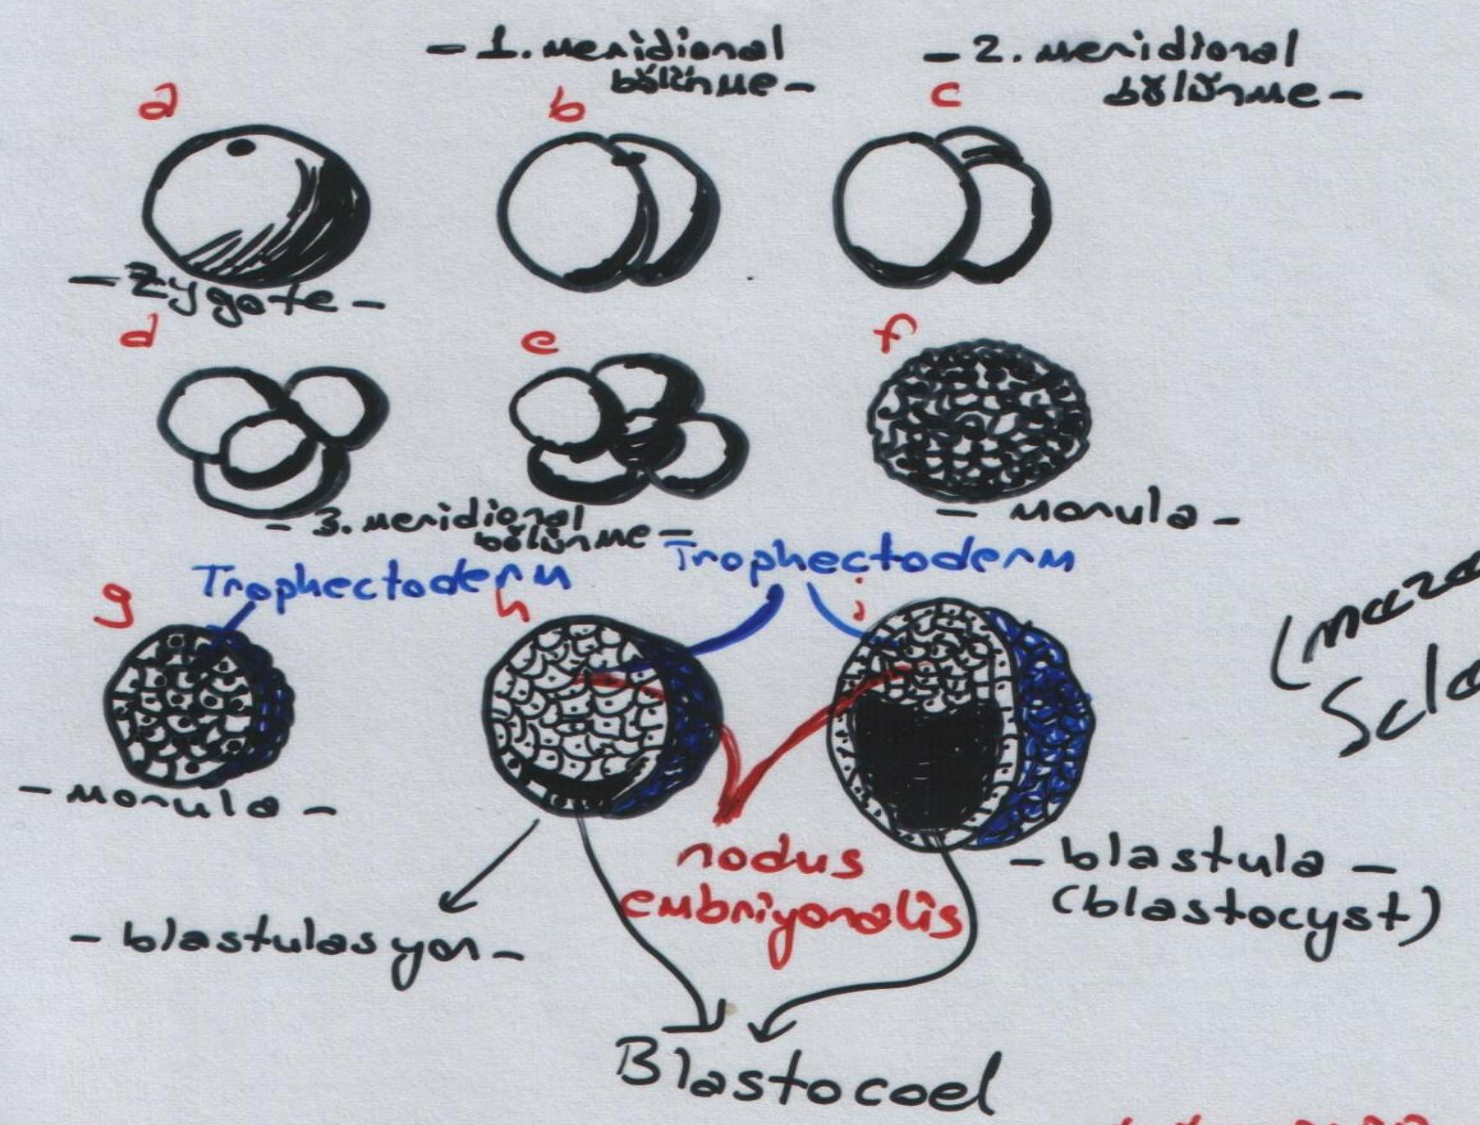 - 1. meridional
bölünme -
- 2. meridional
bölünme -
a
b
c
- Zygote -
d
e
f
- 3. meridional
bölünme -
- morula -
Trophectoderm
Trophectoderm
g
h
i
- morula -
nodus
embriyonalis
- blastula -
(blastocyst)
- blastulasyon -
Blastocoel